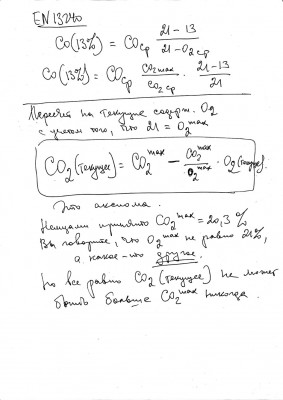 EN 13240
CO(13%) = CO ср (21 - 13)/(21 - O2 ср)
CO(13%) = CO ср CO2 max/CO2 ср · (21-13)/21
Пересчёт на текущие содерж. O2
с учетом того, что 21 = O2 max
CO2(текущее) = CO2 max - CO2 max/O2 max · O2(текущее).
Это аксиома.
Немцами принято CO2 max = 20,3 %
Вы говорите, что O2 max не равно 21%,
а какое-то другое.
Но все равно CO2(текущее) не может
быть больше CO2 max никогда.